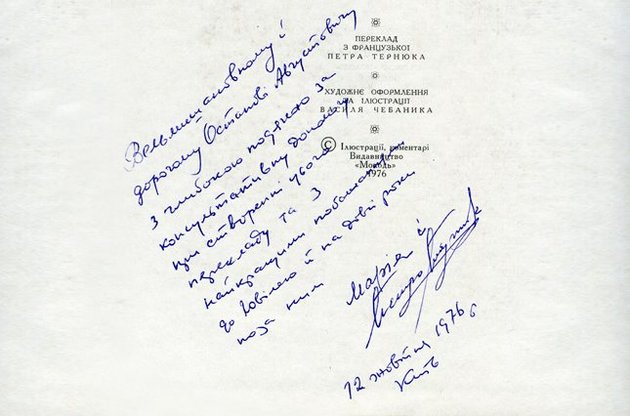 ПЕРЕКЛАД
З ФРАНЦУЗЬКОЇ
ПЕТРА ТЕРНЮКА
ХУДОЖНЄ ОФОРМЛЕННЯ
ТА ІЛЮСТРАЦІЇ
ВАСИЛЯ ЧЕБАНИКА
© Ілюстрації, коментарі
Видавництво
«Молодь»
1976
Вельмишановному і
дорогому Остапові Августовичу
з глибокою подякою за
консультативну допомогу
при створенні цього
перекладу та з
найкращими побажаннями
до Ювілею й на довгі роки
поза ним
Марія і
12 жовтня 1976 б
Київ